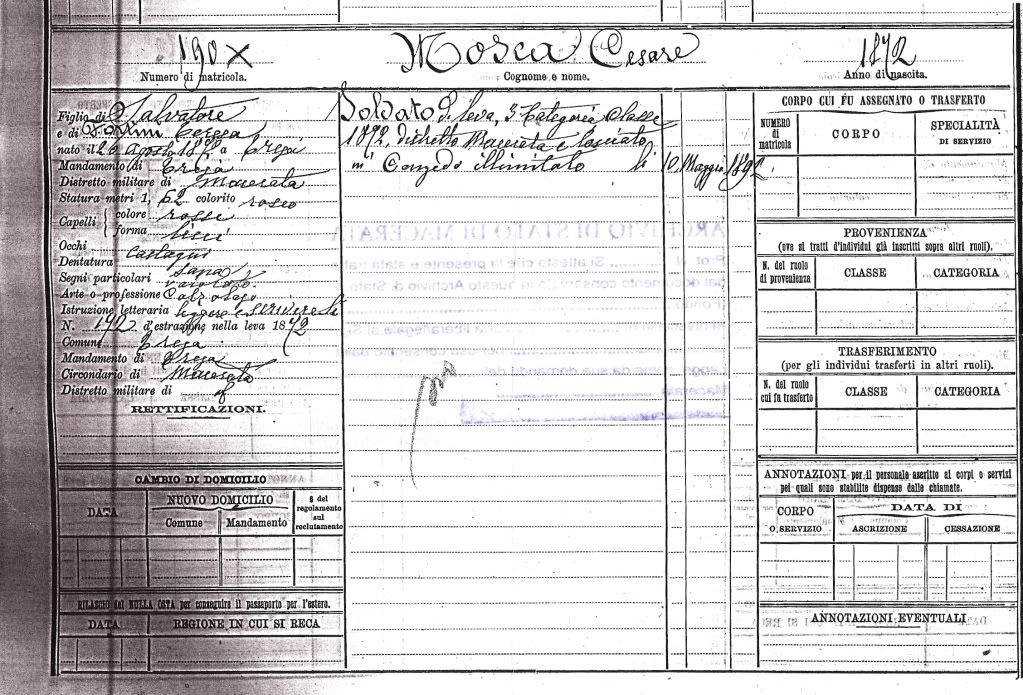 190X
Numero di matricola.
Mosca Cesare
Cognome e nome.
1872
Anno di nascita.
Figlio di Salvatore
e di Teresa
nato il 26 Agosto 1872 a Treja
Mandamento di Treja
Distretto militare di Macerata
Statura metri 1, 62 colorito roseo
Capelli colore rossi
forma lisci
Occhi castagni
Dentatura sana
Segni particolari vaioloso.
Arte o professione Calzolajo
Istruzione letteraria leggere e scrivere Si
N. 192 d'estrazione nella leva 1872
Comune Treja
Mandamento di Treja
Circondario di Macerata
Distretto militare di
RETTIFICAZIONI.
CAMBIO DI DOMICILIO
DATA
NUOVO DOMICILIO
Comune
Mandamento
§ del regolamento sul reclutamento
RILASCIO del NULLA OSTA per conseguire il passaporto per l'estero.
DATA
REGIONE IN CUI SI RECA
Soldato di leva, 3ª Categoria classe
1872, distretto Macerata e lasciato
in Congedo illimitato li 10 Maggio 1892
ARCHIVIO DI STATO DI MACERATA
Si attesta che la presente è stata
CORPO CUI FU ASSEGNATO O TRASFERTO
NUMERO di matricola
CORPO
SPECIALITÀ DI SERVIZIO
PROVENIENZA
(ove si tratti d'individui già inscritti sopra altri ruoli).
N. del ruolo di provenienza
CLASSE
CATEGORIA
TRASFERIMENTO
(per gli individui trasferti in altri ruoli).
N. del ruolo cui fu trasferto
CLASSE
CATEGORIA
ANNOTAZIONI per il personale ascritto ai corpi o servizi
pei quali sono stabilite dispense dalle chiamate.
CORPO O SERVIZIO
DATA DI
ASCRIZIONE
CESSAZIONE
ANNOTAZIONI EVENTUALI